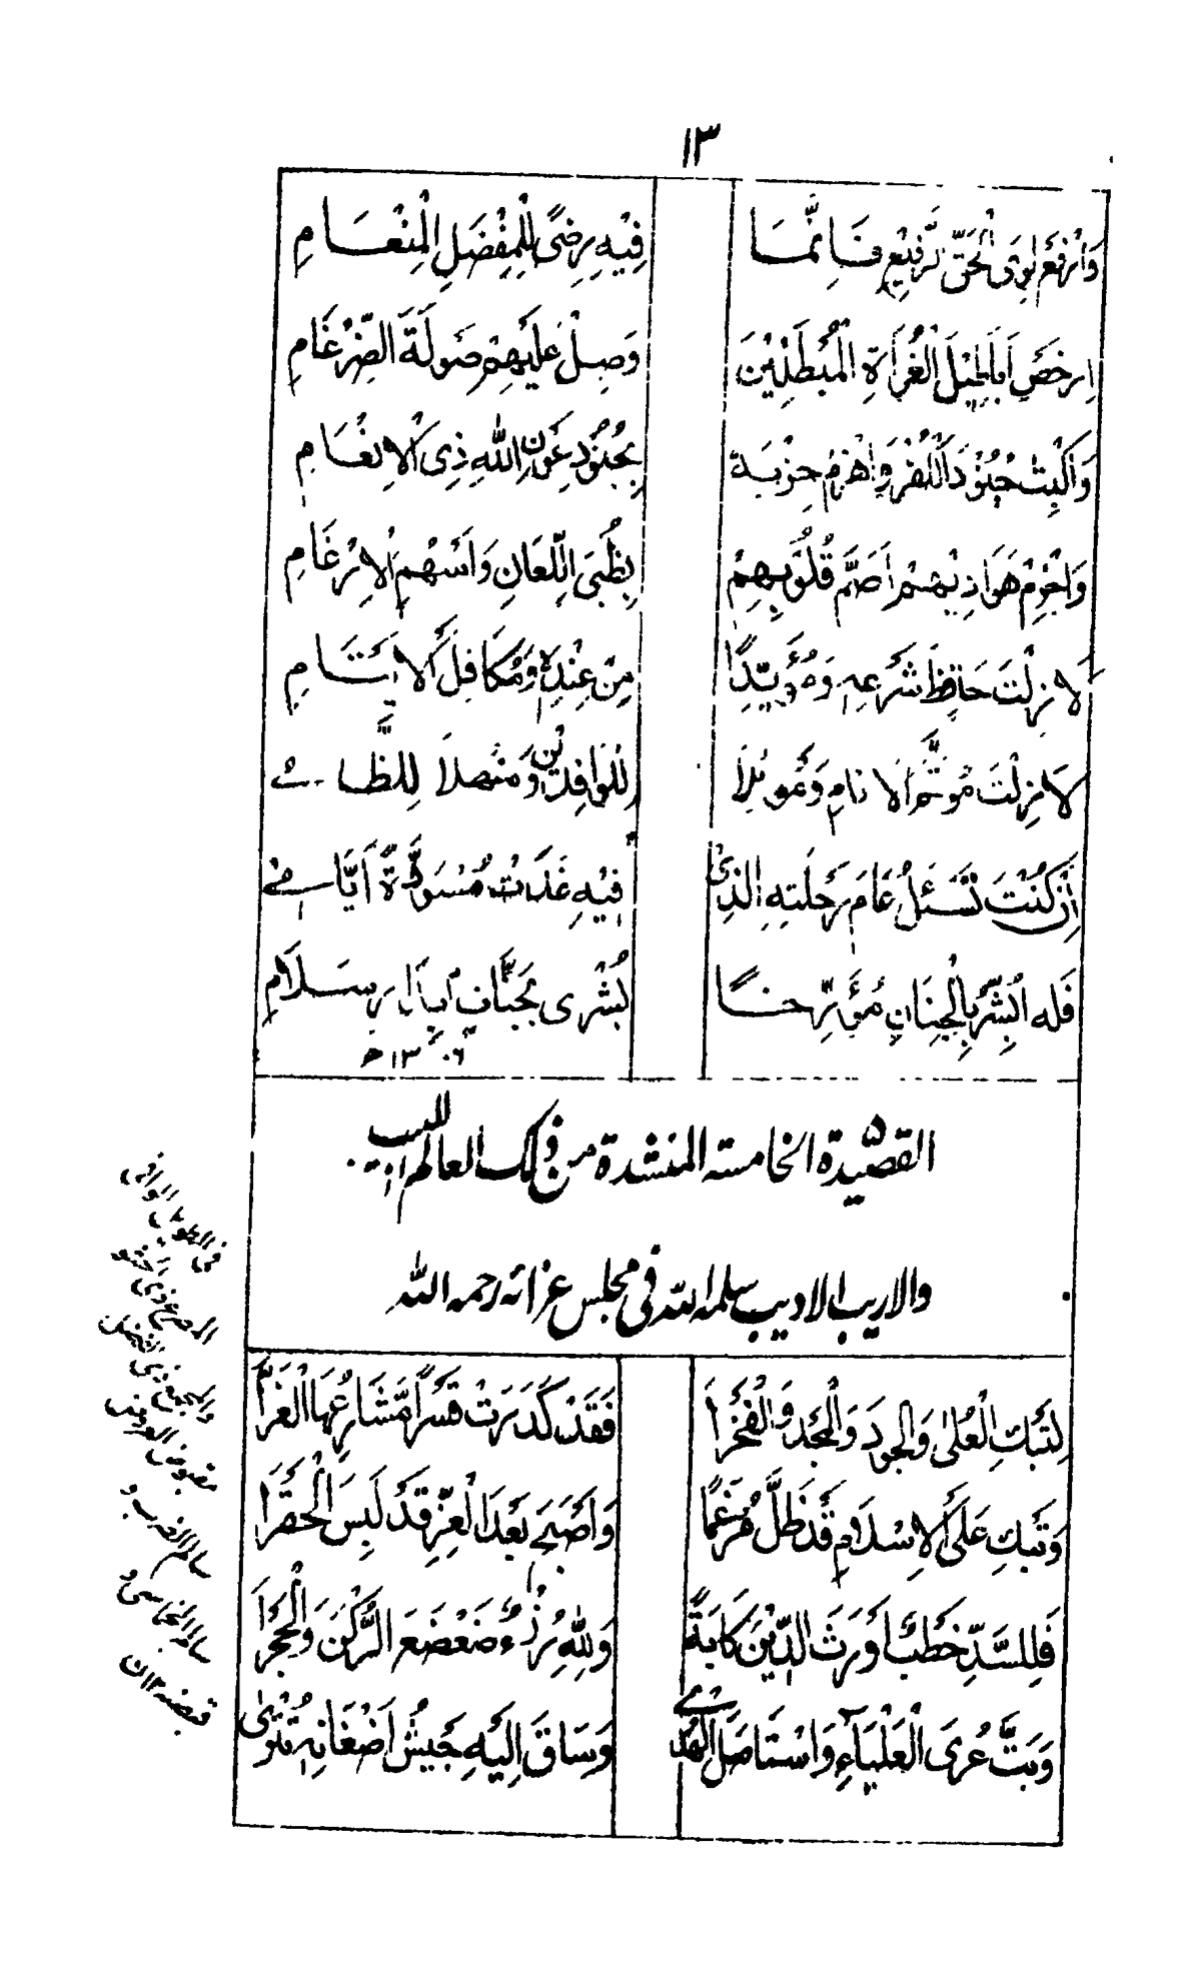 ١٣
وَارْفَعْ لِوَى الْحَقِّ الرَّفِيْعِ فَاِنَّمَا فِيْهِ رِضًى لِلْمُفْضِلِ الْمِنْعَامِ
اِرْخَصْ الْغُرَاةِ الْمُبْطِلِيْنَ وَصِلْ عَلَيْهِمْ صَوْلَةَ الضِّرْغَامِ
وَاكْبِتْ جُنُوْدَ الْكُفْرِ وَاهْزِمْ حِزْبَهٗ بِجُنُوْدِ عَوْنِ اللّٰهِ ذِى الْاِنْعَامِ
وَاخْرِمْ هَوَادِيْهِمْ اَصَمَّ قُلُوْبِهِمْ بِظُبَى اللِّعَانِ وَاَسْهُمِ الْاِرْغَامِ
لَا زِلْتَ حَافِظَ شَرْعِهٖ وَمُؤَيِّدًا مِنْ عِنْدِهٖ وَمُكَافِلَ الْاَيْتَامِ
لَا زِلْتَ مُؤْتَمَّ الْاَنَامِ وَمَوْئِلًا لِلْوَافِدِيْنَ وَمَنْهَلًا لِلظَّامِيْ
اِنْ كُنْتَ تَسْئَلُ عَامَ رِحْلَتِهِ الَّذِيْ فِيْهِ غَدَتْ مُسْوَدَّةً اَيَّامِيْ
فَلَه اَبْشِرْ بِالْجِنَانِ مُؤَرِّخًا بُشْرٰى بِجَنَّاتٍ سَلَامِ
١٣٠٦ھ
القصيدة الخامسة المنشدة من ذلك العالم اللبيب
والاريب الاديب سلمه الله فى مجلس عزائه رحمه الله
لِتَبْكِ الْعُلٰى وَالْجُوْدَ وَالْمَجْدَ وَالْفَخْرَا فَقَدْ كَدَرَتْ قَسْرًا مَشَارِعُهَا الْغَرَّا
وَتَبْكِ عَلَى الْاِسْلَامِ قَدْ ظَلَّ مُرْغَمًا وَاَصْبَحَ بَعْدَ الْعِزِّ قَدْ لَبِسَ الْحَقَرَا
فَلِلسَّدِّ خَطْبٌ اَوْرَثَ الدِّيْنَ كَابَةً وَلِلّٰهِ رُزْءٌ ضَعْضَعَ الرُّكْنَ وَالْحِجْرَا
وَبَتَّ عُرَى الْعَلْيَآءِ وَاسْتَاصَلَ الْهُدٰى وَسَاقَ اِلَيْهِ جَيْشُ اَضْغَانِهٖ تَتْرٰى
فى الطويل الوافى
مقبوض العروض
سالم الضرب